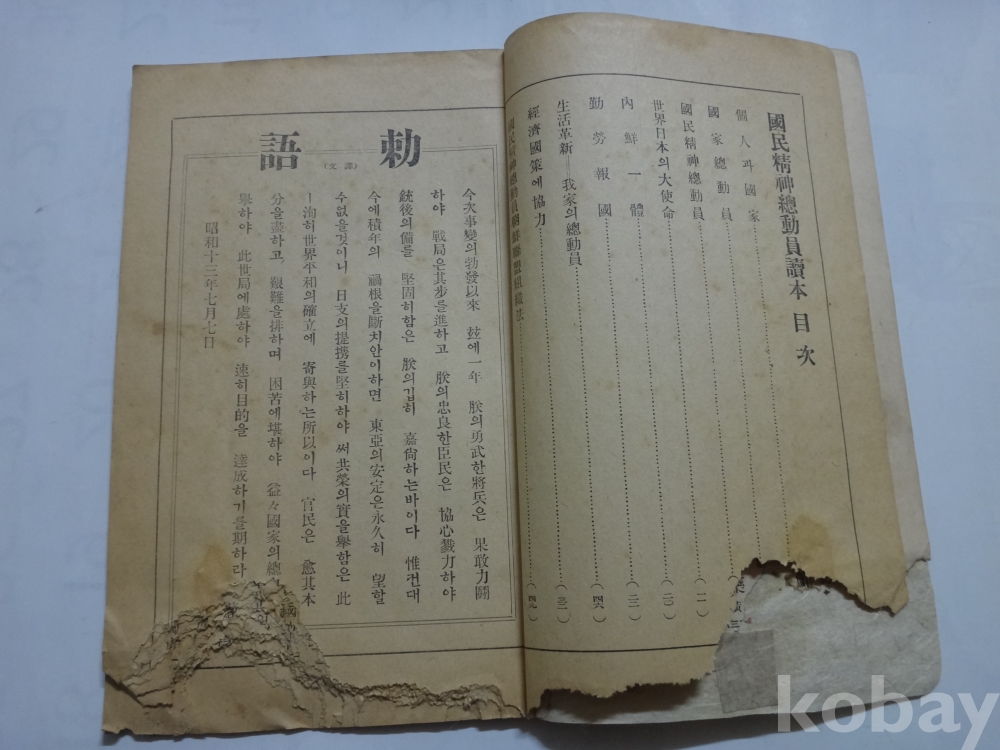 國民精神總動員讀本 目次
個人과國家
國家總動員
國民精神總動員……(一一)
世界日本의大使命……(二〇)
內鮮一體……(三二)
勤勞報國……(四六)
生活革新――我家의總動員
經濟國策에協力
勅語
(譯文)
今次事變의勃發以來 玆에一年 朕의勇武한將兵은 果敢力鬪
하야 戰局은其步를進하고 朕의忠良한臣民은 協心戮力하야
銃後의備를 堅固히함은 朕의깁히 嘉尙하는바이다 惟컨대
今에積年의 禍根을斷치안이하면 東亞의安定은永久히 望할
수업을것이니 日支의提携를堅히하야 써共榮의實을擧함은 此
ㅣ洵히世界平和의確立에 寄與하는所以이다 官民은 愈其本
分을盡하고, 艱難을排하며 困苦에堪하야 益々國家의總
擧하야 此世局에處하야 速히目的을 達成하기를期하라
昭和十三年七月七日
kobay